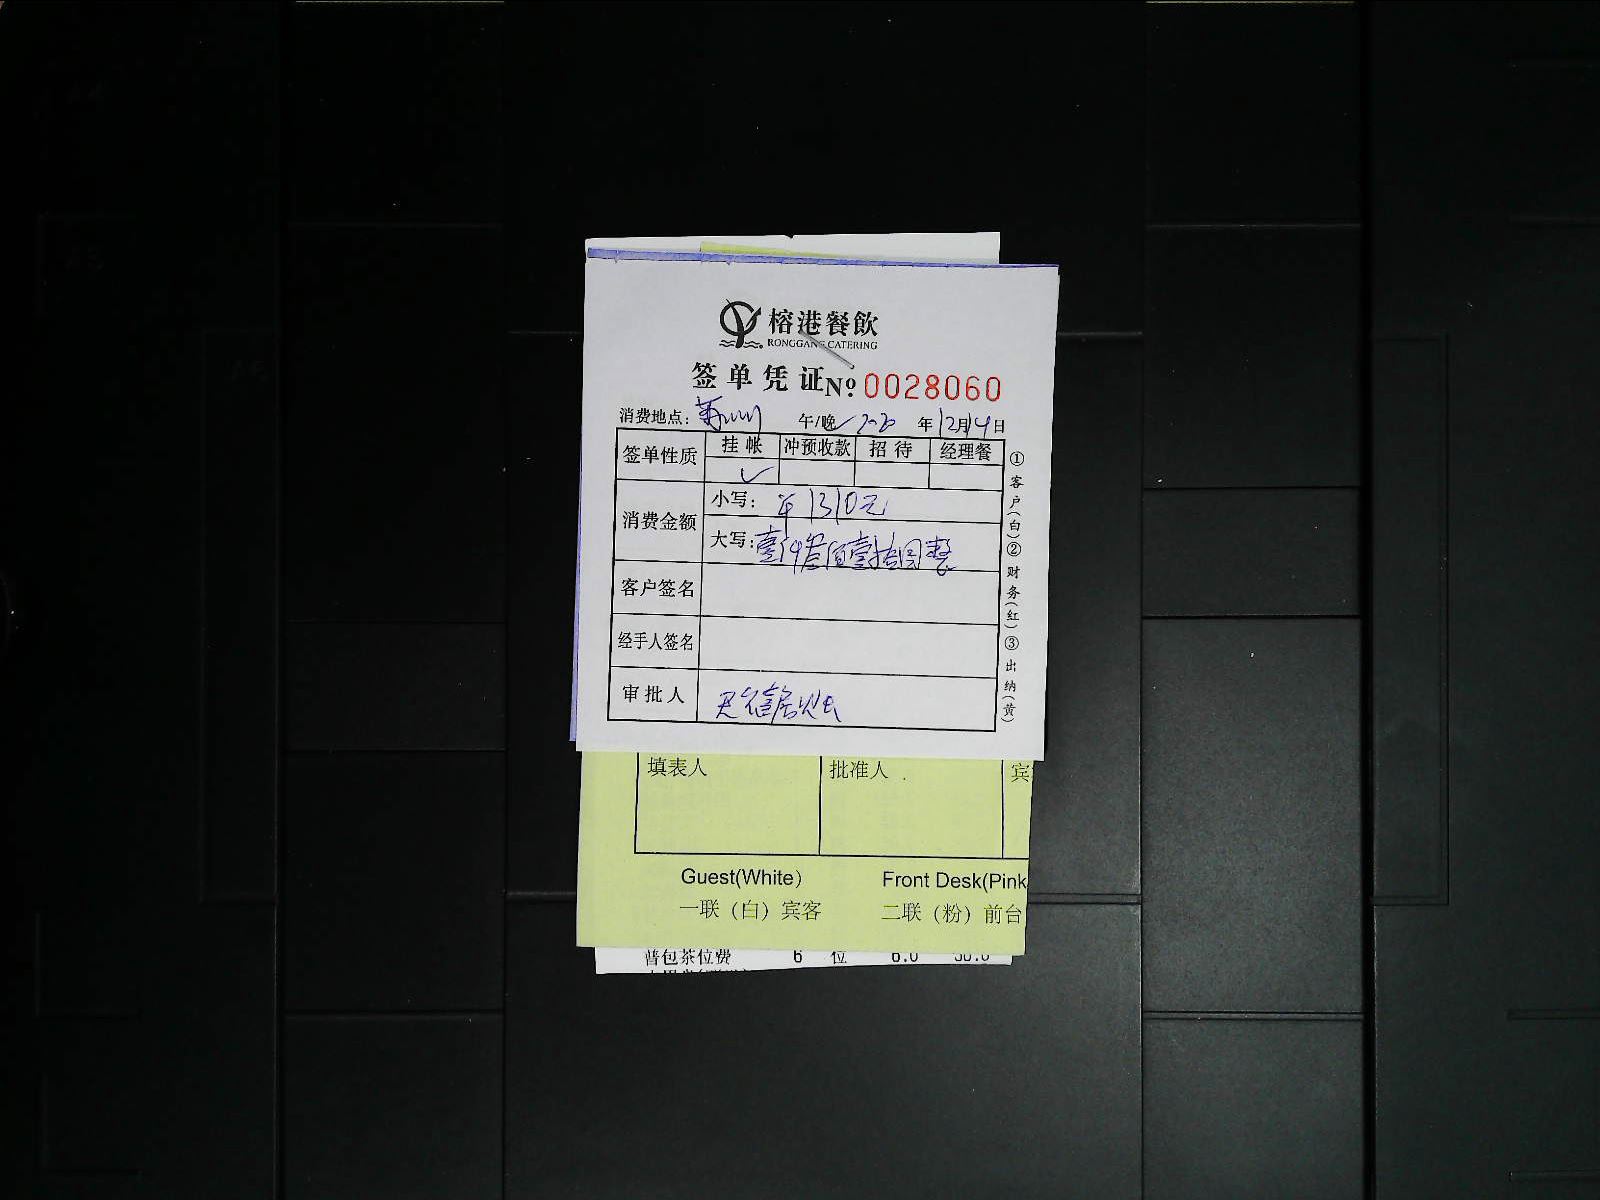 榕港餐飲
RONGGANG CATERING
签单凭证 No: 0028060
消费地点: 午/晚 年12月14日
签单性质 挂帐 冲预收款 招待 经理餐
✓
消费金额 小写: ¥1310元
大写: 壹仟叁佰壹拾圆整
客户签名
经手人签名
审批人
①客户(白)②财务(红)③出纳(黄)
填表人 批准人 宾
Guest(White) Front Desk(Pink
一联(白)宾客 二联(粉)前台
普包茶位费 6 位 6.0